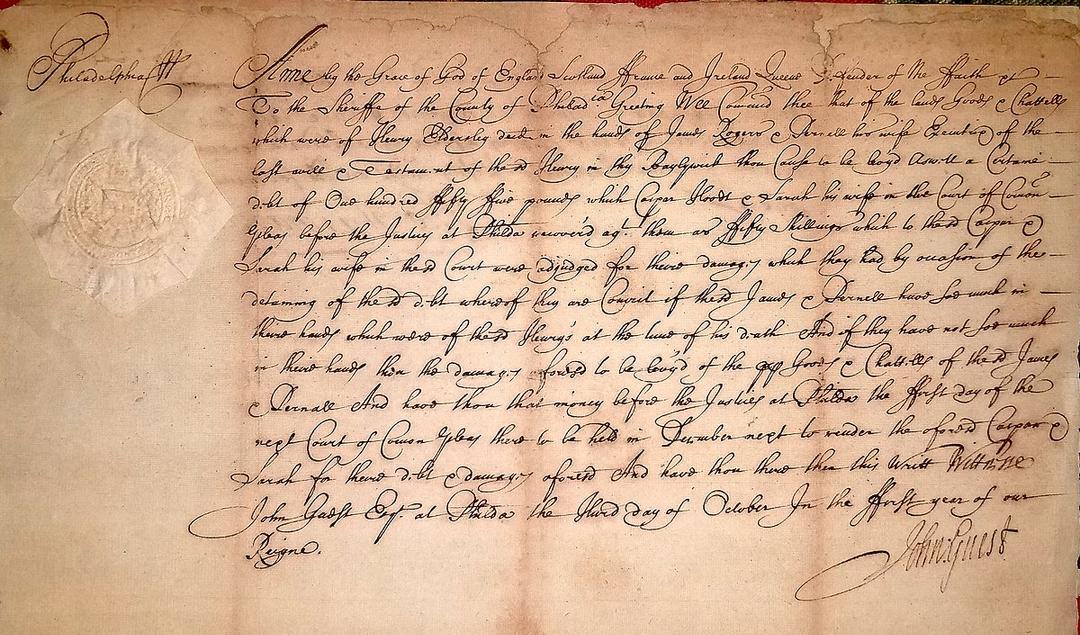 Philadelphia ss
Anne by the Grace of God of England Scotland ffrance and Ireland Queene Defender of the ffaith &c
To the Sheriffe of the County of Philadia Greeting Wee Comand thee that of the lands Goods & Chattells
which were of Henry Eldersley decd in the hands of James Rogers & Dernell his wife Executrix of the
last will & Testament of the sd Henry in thy Baylywick thou Cause to be levyd aswell a Certaine
debt of One hundred ffifty ffive pounds which Caspar Hoodt & Sarah his wife in the Court of Comon
Pleas before the Justices at Philda recoverd agt. them as ffifty Shillings which to the sd Caspar &
Sarah his wife in the sd Court were adjudged for theire damages which they had by occasion of the
detaining of the sd debt whereof they are Convict if the sd James & Dernell have soe much in
theire hands which were of the sd Henry's at the time of his death And if they have not soe much
in theire hands then the damages foresd to be levyd of the Goods & Chattells of the sd James
& Dernall And have thou that money before the Justices at Philda the ffirst day of the
next Court of Comon Pleas there to be held in December next to render the aforesd Caspar &
Sarah for theire debt & damages aforesd And have thou there then this Writt Wittnesse
John Guest Esqr. at Philda the third day of October In the ffirst year of our
Reigne.
John: Guest